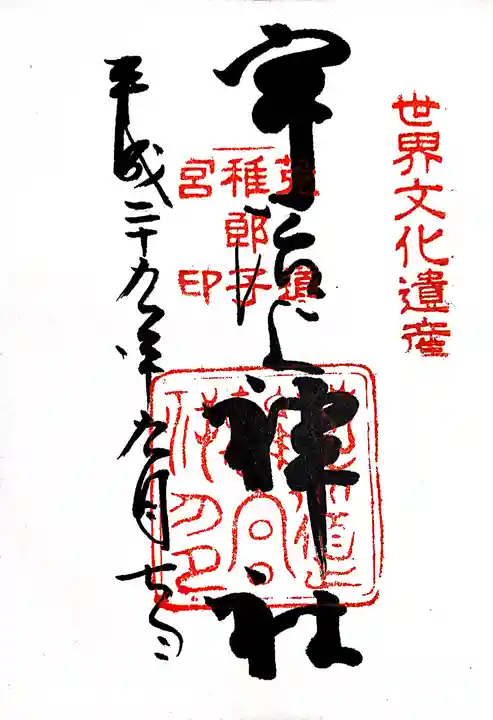 世界文化遺産
宇治上神社
菟道
稚郎子
宮印
平成二十九年九月七日